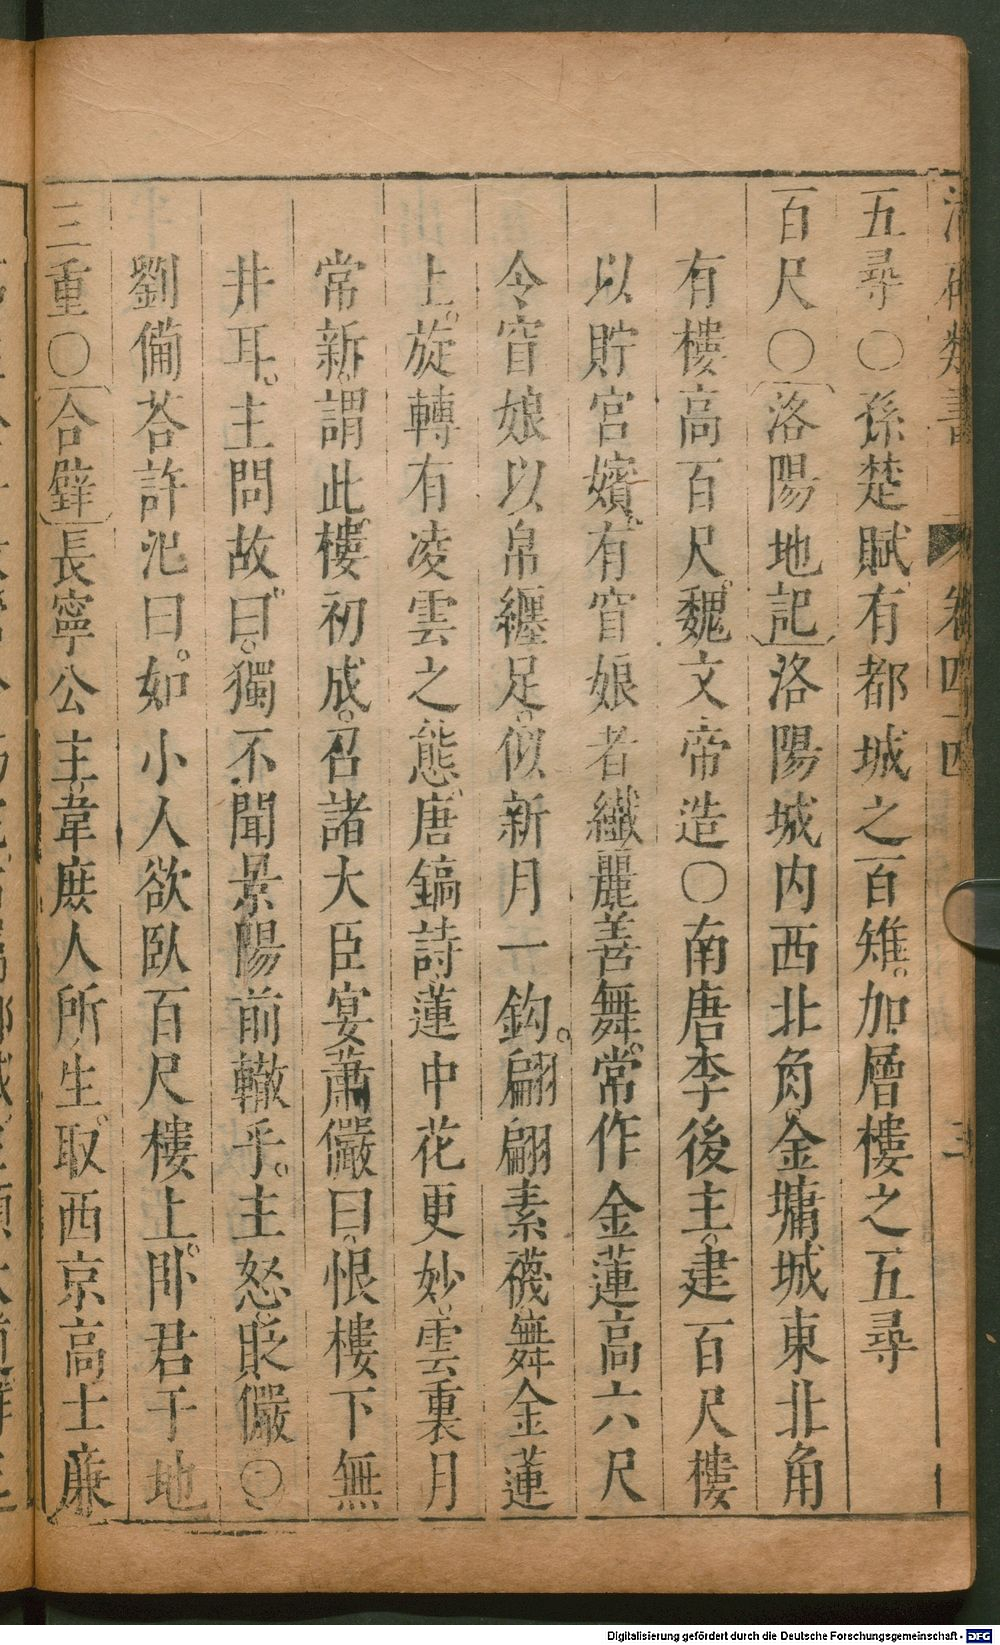 五尋○孫楚賦有都城之百雉。加層樓之五尋
百尺○洛陽地記洛陽城內西北角。金墉城東北角
有樓高百尺。魏文帝造○南唐李後主。建百尺樓
以貯宮嬪。有窅娘者纖麗善舞。常作金蓮高六尺
令窅娘以帛纏足。似新月一鈎。翩翩素襪舞金蓮
上。旋轉有凌雲之態。唐鎬詩蓮中花更妙。雲裏月
常新。謂此樓初成。召諸大臣宴蕭儼曰。恨樓下無
井耳。主問故。曰。獨不聞景陽前轍乎。主怒。貶儼○
劉備荅許汜曰。如小人欲臥百尺樓上。卧君于地
三重○合璧長寧公主。韋庶人所生。取西京高士廉
Digitalisierung gefördert durch die Deutsche Forschungsgemeinschaft - DFG